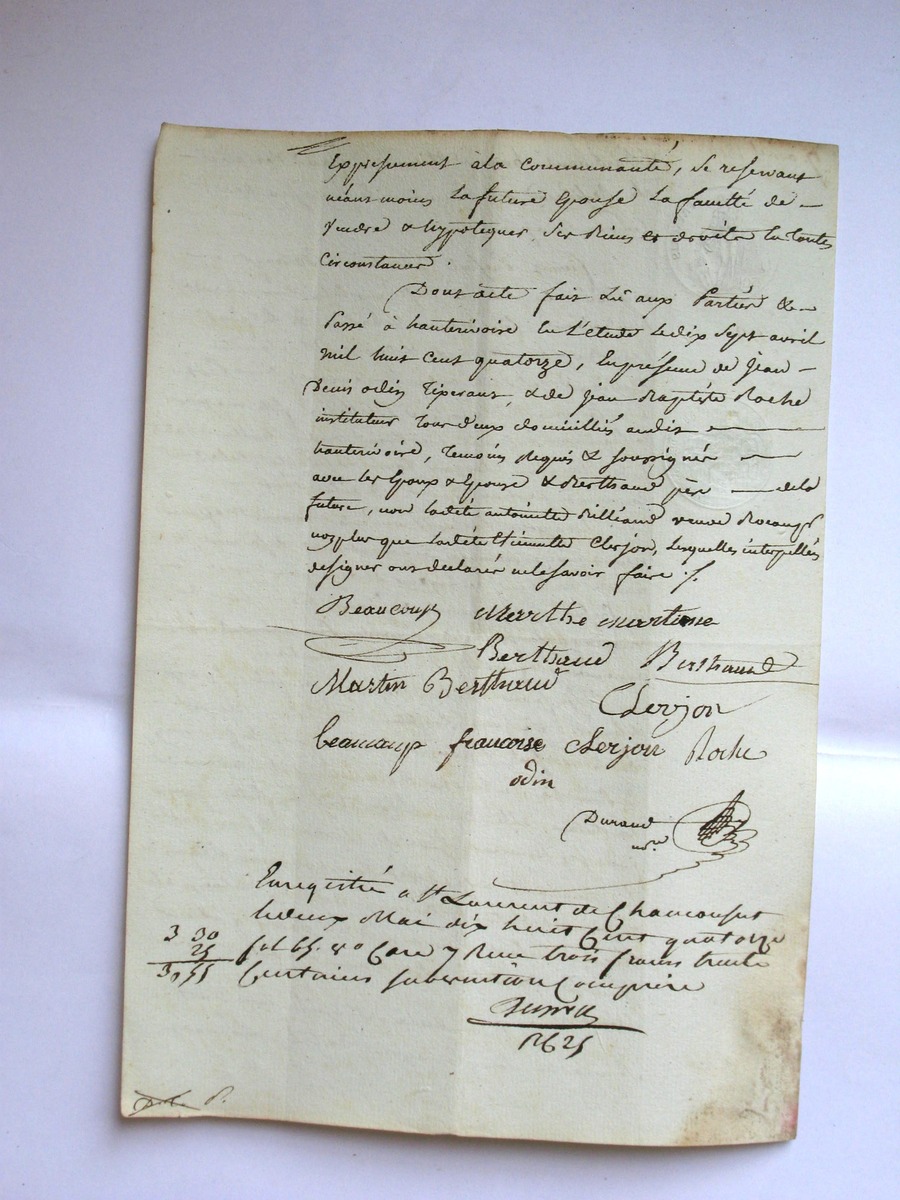 Expressement à la Communauté, se reservant
néant moins la future Epouse la faculté de
Vendre & hypotequer ses Biens et droits en toutes
Circonstances.
Dont acte fait Lû aux Parties &
Passé à hauterivoire En L'étude Le dix Sept avril
mil huit cent quatorze, En présence de Jean
Denis odin Tiserant, & de Jean Baptiste Roche
instituteur Tous deux domicilliés audit
hauterivoire, Temoins Requis & soussignés
avec les Epoux & Epouse & Berthaud père de la
future, non ladite antoinette Rilliard veuve
non plus que ladite Etiennette Clerjon, Lesquelles interpellées
de signer ont declarés ne le savoir faire ./.
Beaucoup Marthe martine
Berthaud Berthaud
Martin Berthaud
Clerjon
beaucoup francoise Clerjon Roche
odin
Durand
nre
Enregistré a St Laurent de Chamousset
le deux Mai dix huit Cent quatorze
3 30
25
fol 65. vo Case 7 Reçu trois francs trente
3,55
Centimes subvention Comprise